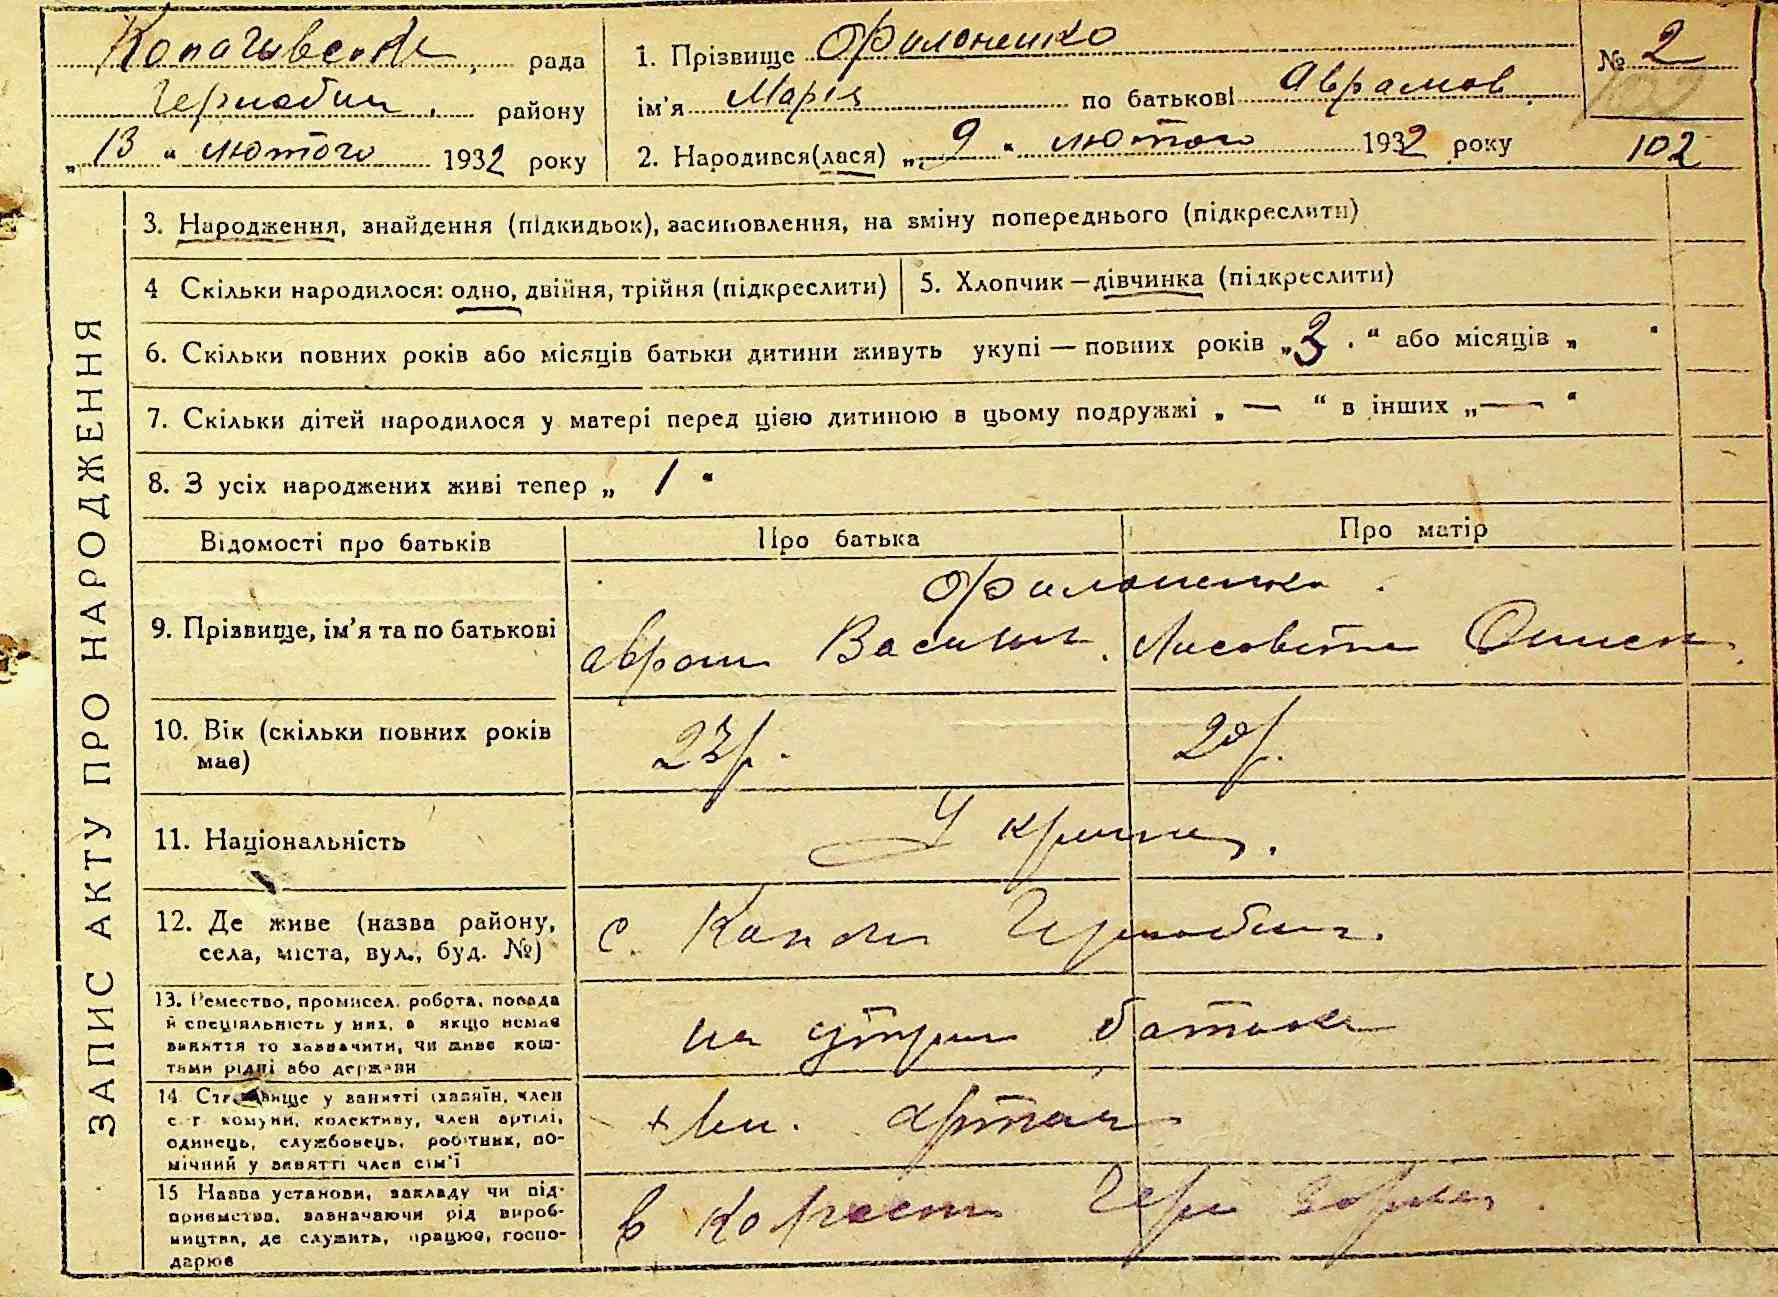 Копачівська, рада
Чернобил. району
„ 13 " лютого 1932 року
1. Прізвище Филоненко
ім'я Марія по батькові Аврамов.
2. Народився(лася) „ 9 " лютого 1932 року
№ 2
102
ЗАПИС АКТУ ПРО НАРОДЖЕННЯ
3. Народження, знайдення (підкидьок), засиновлення, на зміну попереднього (підкреслити)
4 Скільки народилося: одно, двійня, трійня (підкреслити)
5. Хлопчик — дівчинка (підкреслити)
6. Скільки повних років або місяців батьки дитини живуть укупі — повних років „ 3 . " або місяців „ "
7. Скільки дітей народилося у матері перед цією дитиною в цьому подружжі „ — " в інших „ — "
8. З усіх народжених живі тепер „ 1 "
Відомості про батьків
Про батька
Про матір
9. Прізвище, ім'я та по батькові
Филоненко.
Аврам Васильов.
Лисовета
10. Вік (скільки повних років
має)
23 р.
20 р.
11. Національність
Україн.
12. Де живе (назва району,
села, міста, вул., буд. №)
с. Копачи Чернобил.
13. Ремество, промисел, робота, посада
й спеціяльність у них, а якщо немає
заняття то зазначити, чи живе кош-
тами рідні або держави
на утрим батька
14. Становище у занятті (хазяїн, член
с.-г. комуни, колективу, член артілі,
одинець, службовець, робітник, по-
мічний у занятті член сім'ї
член. артіл
15 Назва установи, закладу чи під-
приємства, зазначаючи рід вироб-
ництва, де служить, працює, госпо-
дарює
в